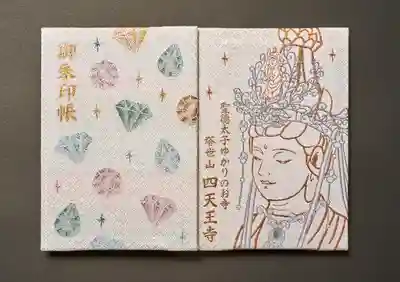 御朱印帳
聖徳太子ゆかりのお寺
塔世山 四天王寺